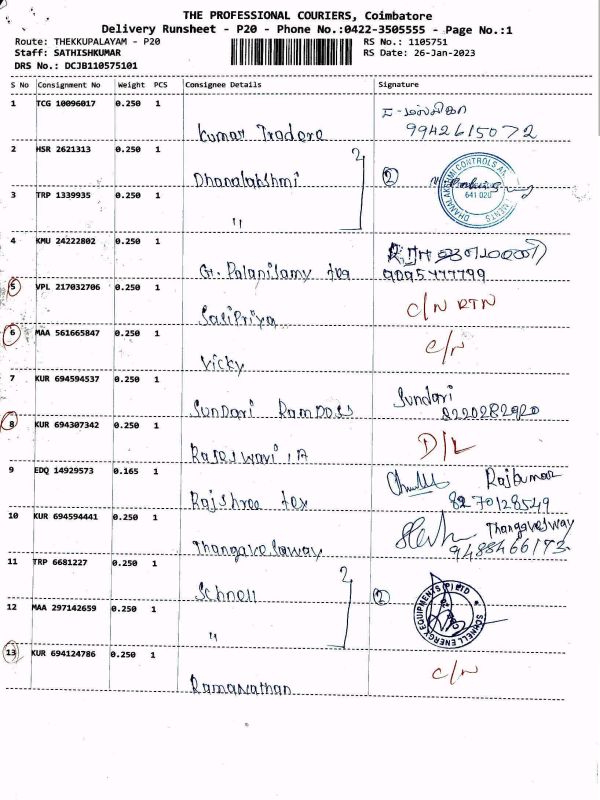 THE PROFESSIONAL COURIERS, Coimbatore
Delivery Runsheet - P20 - Phone No.:0422-3505555 - Page No.:1
Route: THEKKUPALAYAM - P20 RS No.: 1105751
Staff: SATHISHKUMAR RS Date: 26-Jan-2023
DRS No.: DCJB110575101
S No Consignment No Weight PCS Consignee Details Signature
1 TCG 10096017 0.250 1
Kumar Tradere 9942615072
2 HSR 2621313 0.250 1
Dhanalakshmi 2 2
DHANALAKSHMI CONTROLS 641 020
3 TRP 1339935 0.250 1
"
4 KMU 24222802 0.250 1
G. Palanisamy tea 9095477799
5 VPL 217032706 0.250 1 C/N RTN
SasiPriya
6 MAA 561665847 0.250 1 C/N
Vicky
7 KUR 694594537 0.250 1 Sundari
Sundari Ramdoss 8220282920
8 KUR 694307342 0.250 1 D/L
Rajeswari
9 EDQ 14929573 0.165 1 Rajkumar
Rajshree tex 8270128549
10 KUR 694594441 0.250 1 Thangaveswary
Thangaveswary 9488466173
11 TRP 6681227 0.250 1
Schnell 2 2
SCHNELL ENERGY EQUIPMENTS (P) LTD
12 MAA 297142659 0.250 1
"
13 KUR 694124786 0.250 1 C/N
Ramanathan